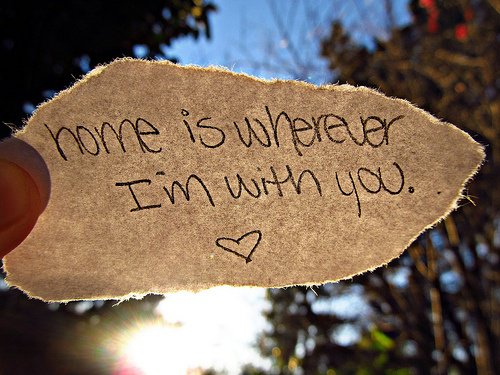 home is wherever
I'm with you.